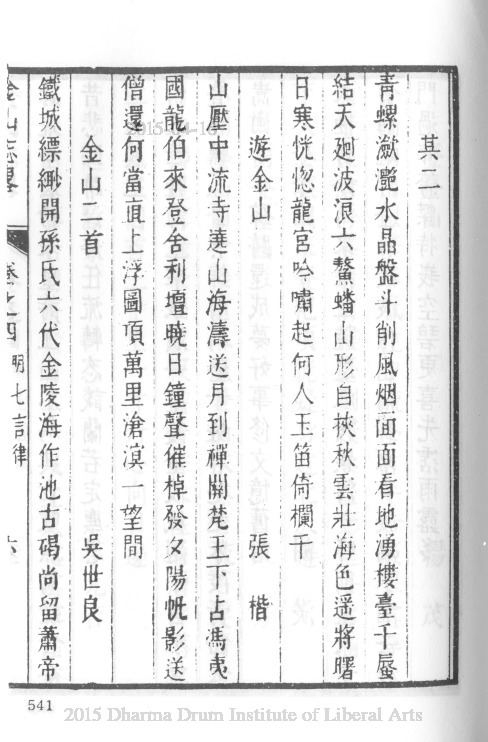 其二
青螺瀲灔水晶盤斗削風烟面面看地湧樓臺千蜃
結天廻波浪六鰲蟠山形自挾秋雲壯海色遥將曙
日寒恍惚龍宮吟嘯起何人玉笛倚欄干
遊金山 張楷
山壓中流寺遶山海濤送月到禪關梵王下占馮夷
國龍伯來登舍利壇曉日鐘聲催棹發夕陽帆影送
僧還何當直上浮圖項萬里滄溟一望間
金山二首 吳世良
鐵城縹緲開孫氏六代金陵海作池古碣尚留蕭帝
金山志畧 卷之四 明七言律 六
541
2015 Dharma Drum Institute of Liberal Arts